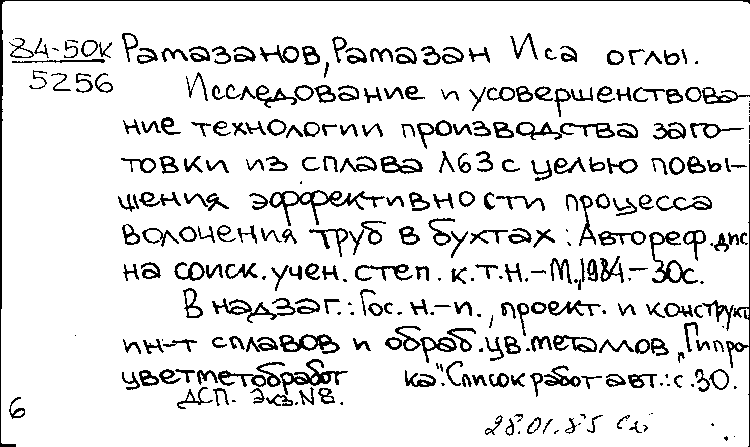 84-50К Рамазанов, Рамазан Иса оглы.
5256
Исследование и усовершенствова-
ние технологии производства заго-
товки из сплава Л63 с целью повы-
шения эффективности процесса
волочения труб в бухтах: Автореф. дис
на соиск. учен. степ. к.т.н. – М., 1984. – 30с.
В надзаг.: Гос. н.-и., проект. и конструкт
ин-т сплавов и обраб. цв. металлов „Гипро-
цветметобработ ка". Список работ авт.: с. 30.
ДСП. Экз. N8.
6
28.01.85